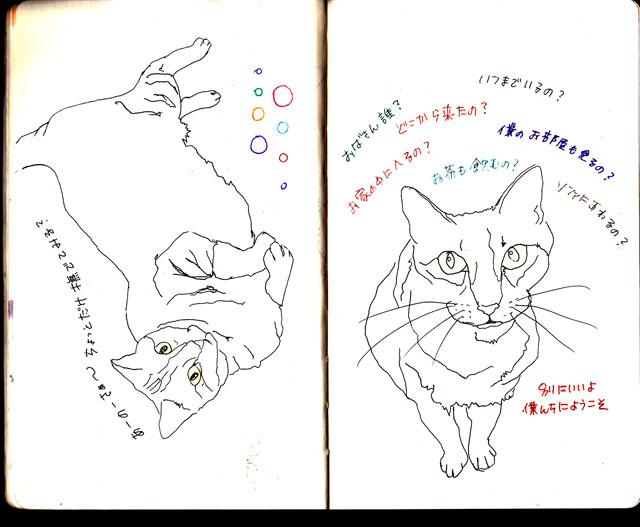 あーのーさぁ〜 ちょっとだけ 撫でてみる?
いつまでいるの?
おばさん誰?
どこから来たの?
僕のお部屋も見るの?
お家の中に入るの?
お茶も飲むの?
ソファにすわるの?
別にいいよ
僕んちにようこそ